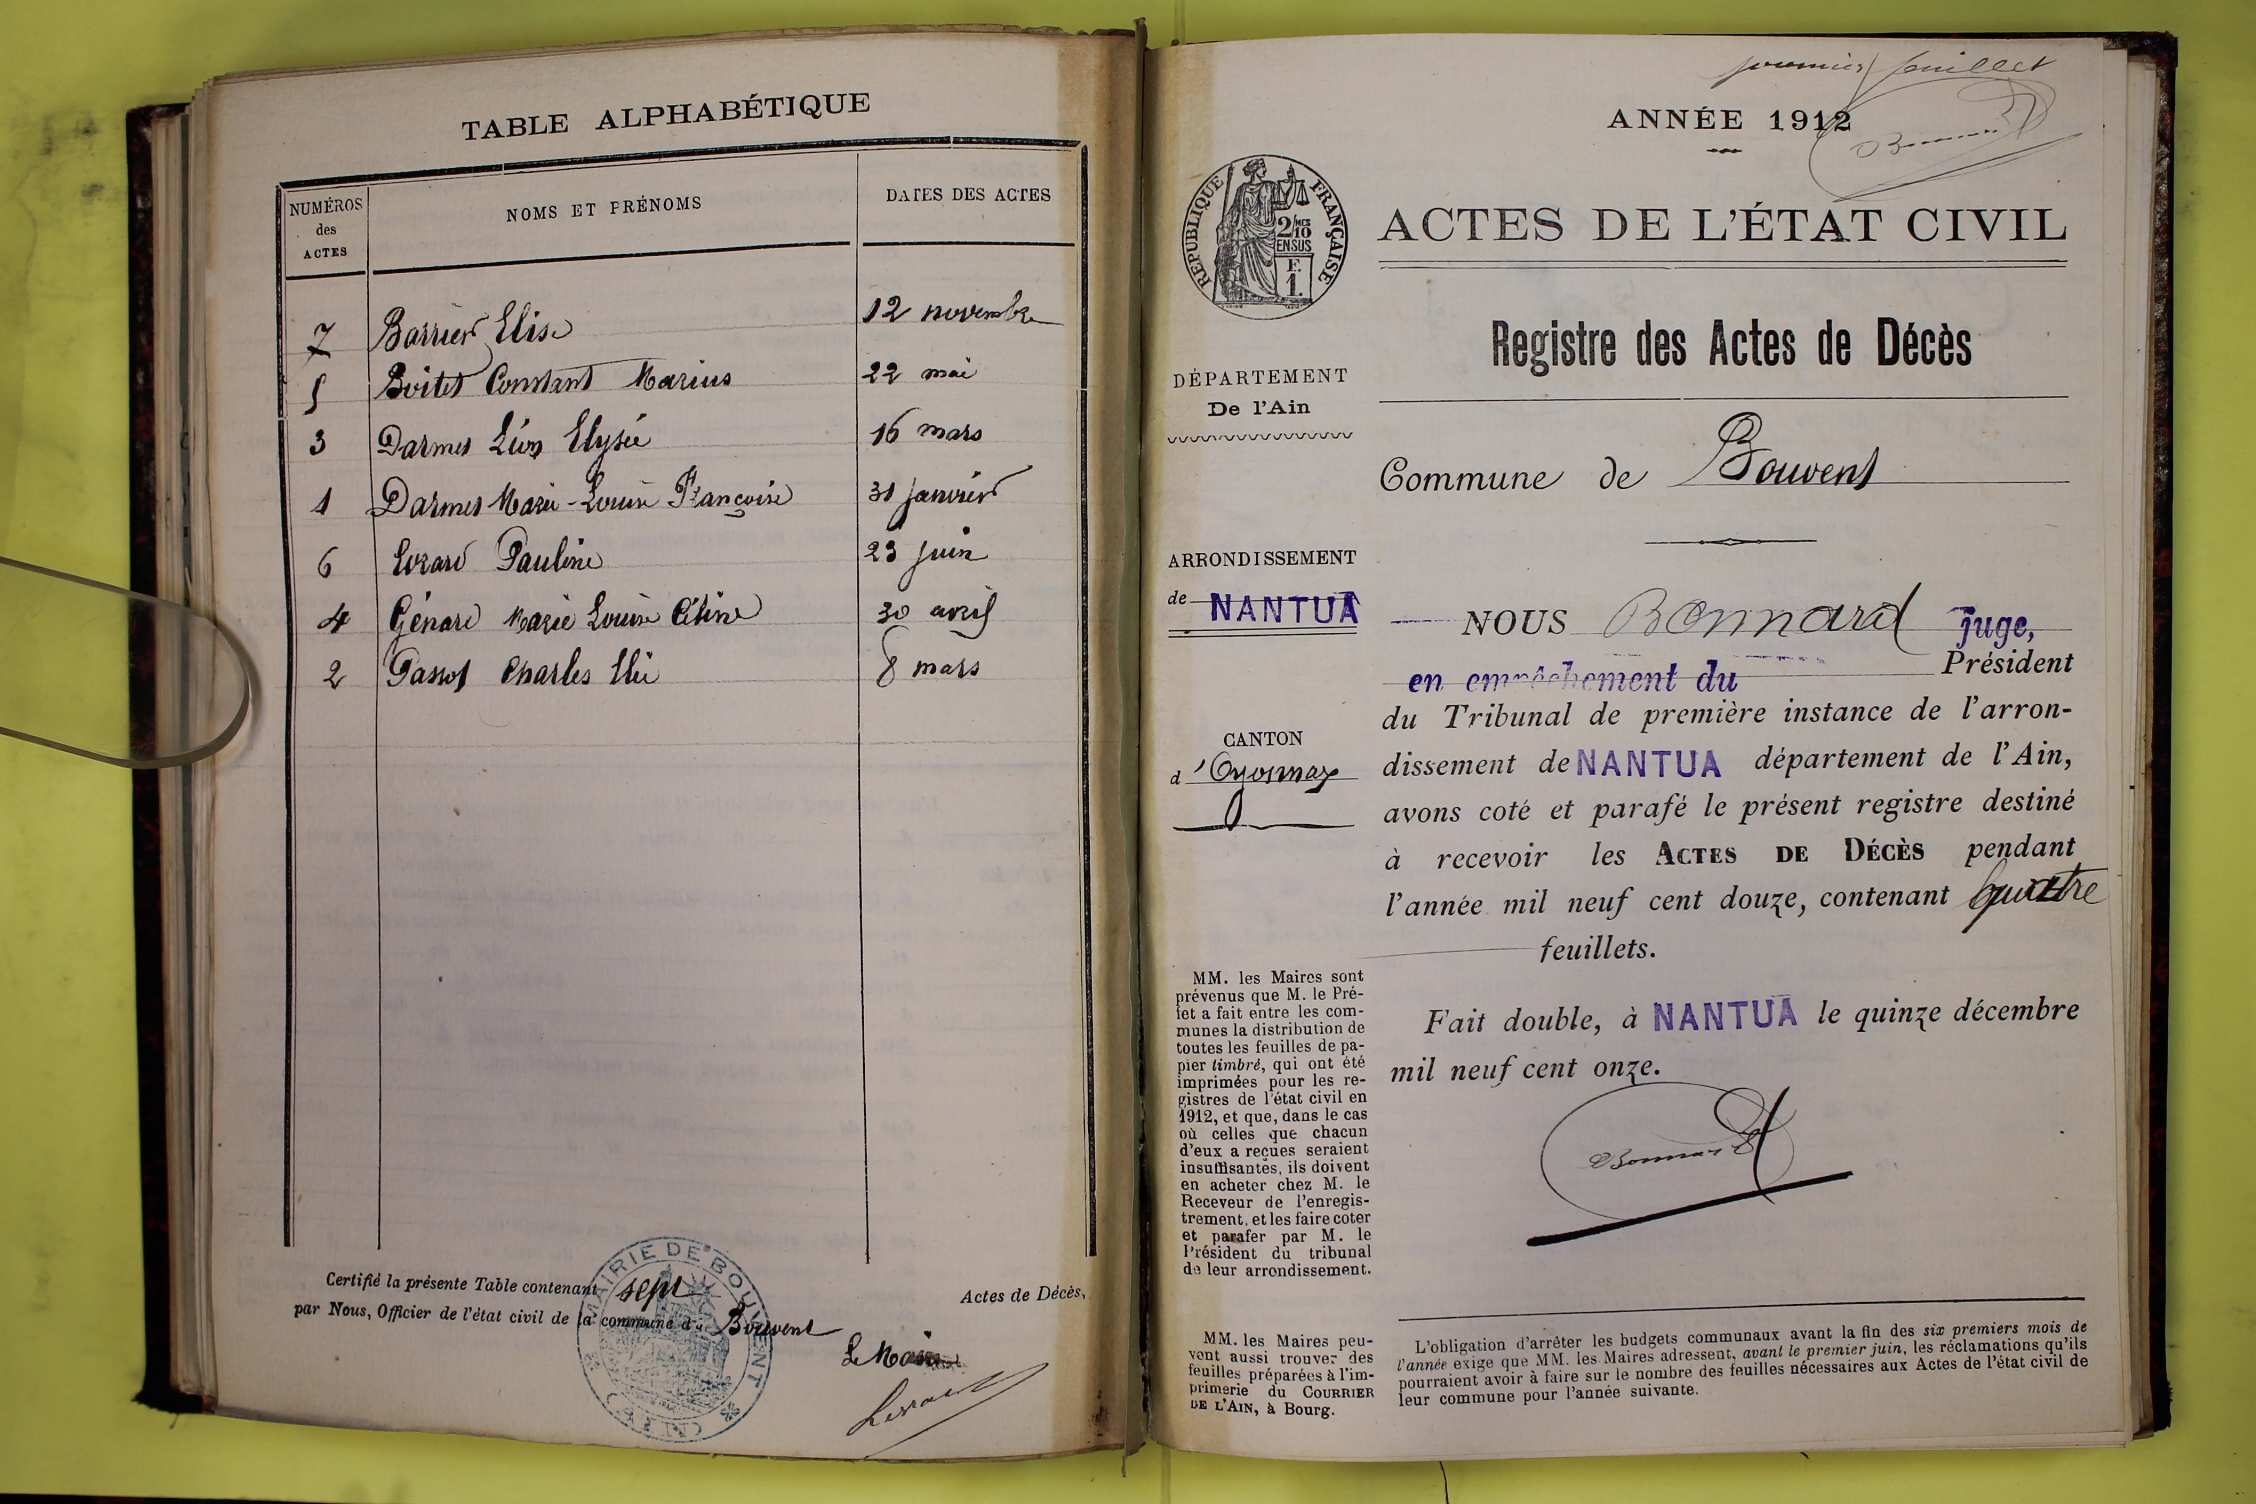 TABLE ALPHABÉTIQUE
NUMÉROS des ACTES
NOMS ET PRÉNOMS
DATES DES ACTES
7 Barrier Elise 12 novembre
5 Boitet Constant Marius 22 mai
3 Darmet Léon Elysée 16 mars
1 Darmet Marie-Louise Françoise 31 janvier
6 Pauline 23 juin
4 Génard Marie Louise Céline 30 avril
2 Passot Charles Elie 8 mars
Certifié la présente Table contenant sept Actes de Décès,
par Nous, Officier de l'état civil de la commune de Bouvent
Le Maire
MAIRIE DE BOUVENT (AIN)
premier feuillet
ANNÉE 1912
Bonnard
RÉPUBLIQUE FRANÇAISE
2/10
EN SUS
F.
1.
ACTES DE L'ÉTAT CIVIL
Registre des Actes de Décès
DÉPARTEMENT
De l'Ain
Commune de Bouvent
ARRONDISSEMENT
de NANTUA
CANTON
d'Oyonnax
NOUS Bonnard juge,
en empêchement du Président
du Tribunal de première instance de l'arron-
dissement de NANTUA département de l'Ain,
avons coté et parafé le présent registre destiné
à recevoir les ACTES DE DÉCÈS pendant
l'année mil neuf cent douze, contenant quatre
feuillets.
Fait double, à NANTUA le quinze décembre
mil neuf cent onze.
Bonnard
MM. les Maires sont
prévenus que M. le Pré-
fet a fait entre les com-
munes la distribution de
toutes les feuilles de pa-
pier timbré, qui ont été
imprimées pour les re-
gistres de l'état civil en
1912, et que, dans le cas
où celles que chacun
d'eux a reçues seraient
insuffisantes, ils doivent
en acheter chez M. le
Receveur de l'enregis-
trement, et les faire coter
et parafer par M. le
Président du tribunal
de leur arrondissement.
MM. les Maires peu-
vent aussi trouver des
feuilles préparées à l'im-
primerie du COURRIER
DE L'AIN, à Bourg.
L'obligation d'arrêter les budgets communaux avant la fin des six premiers mois de
l'année exige que MM. les Maires adressent, avant le premier juin, les réclamations qu'ils
pourraient avoir à faire sur le nombre des feuilles nécessaires aux Actes de l'état civil de
leur commune pour l'année suivante.